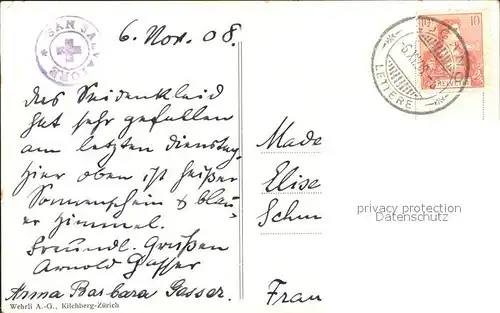 SAN SALVATORE
6. Nov. 08.
10
LETTERE
Das Seidenkleid
hat sehr gefallen
am letzten Dienstag.
Hier oben ist heißer
Sonnenschein & blau-
er Himmel.
Freundl. Grüßen
Arnold Gasser
Anna Barbara Gasser.
Wehrli A.-G., Kilchberg-Zürich
Made
Elise
Schm
Frau
privacy protection
Datenschutz